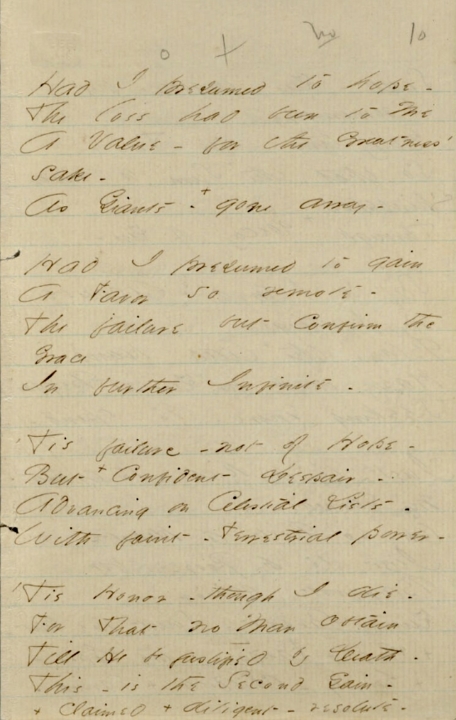 o + no 10
Had I presumed to hope -
The loss had been to Me
A Value - for the Greatness'
Sake -
As Giants - + gone away -
Had I presumed to gain
A Favor so remote -
The failure but confirm the
Grace
In further Infinite -
'Tis failure - not of Hope -
But + Confident Despair -
Advancing on Celestial Lists -
With faint - Terrestrial power -
'Tis Honor - though I die -
For That no Man obtain
Till He be justified by Death -
This - is the Second Gain -
+ claimed + diligent - resolute -